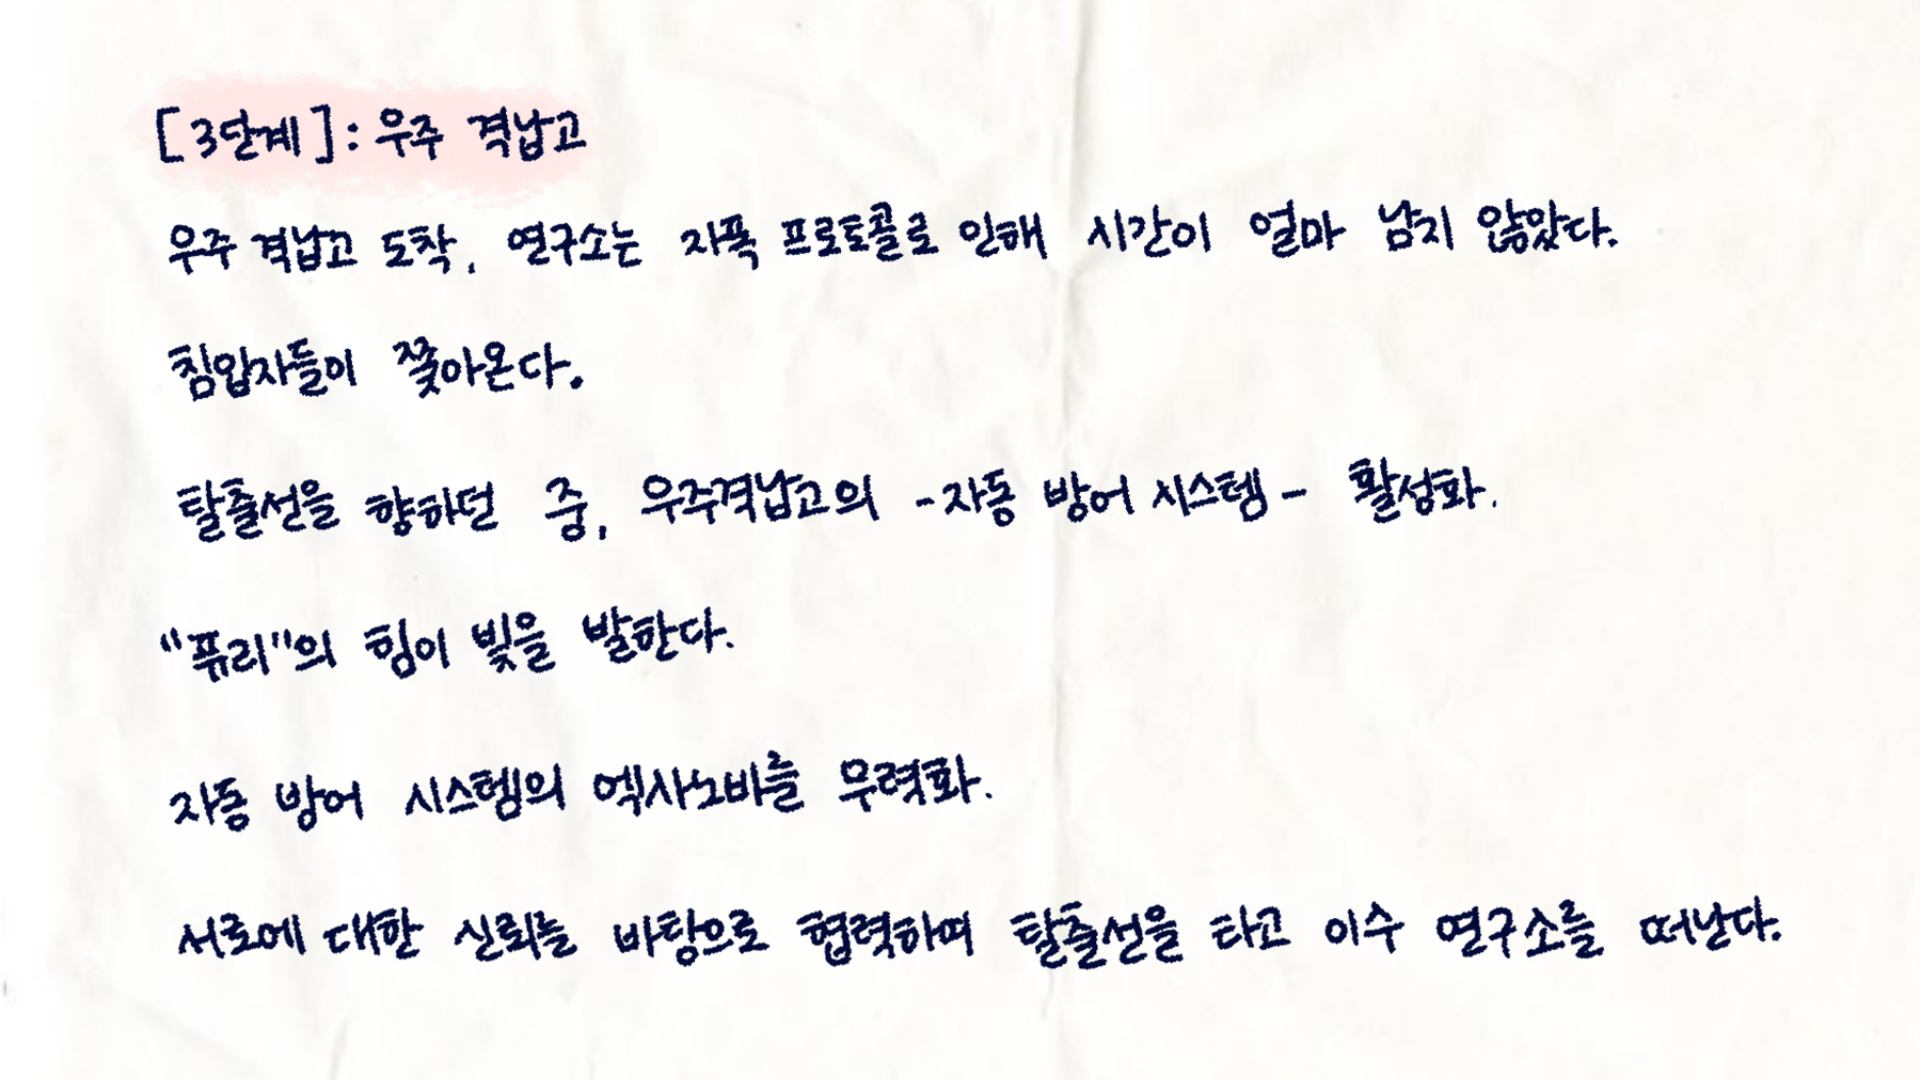 [3단계] : 우주 격납고
우주 격납고 도착, 연구소는 자폭 프로토콜로 인해 시간이 얼마 남지 않았다.
침입자들이 쫓아온다.
탈출선을 향하던 중, 우주격납고의 -자동 방어 시스템- 활성화.
"퓨리"의 힘이 빛을 발한다.
자동 방어 시스템의 엑사노바를 무력화.
서로에 대한 신뢰를 바탕으로 협력하며 탈출선을 타고 이수 연구소를 떠난다.